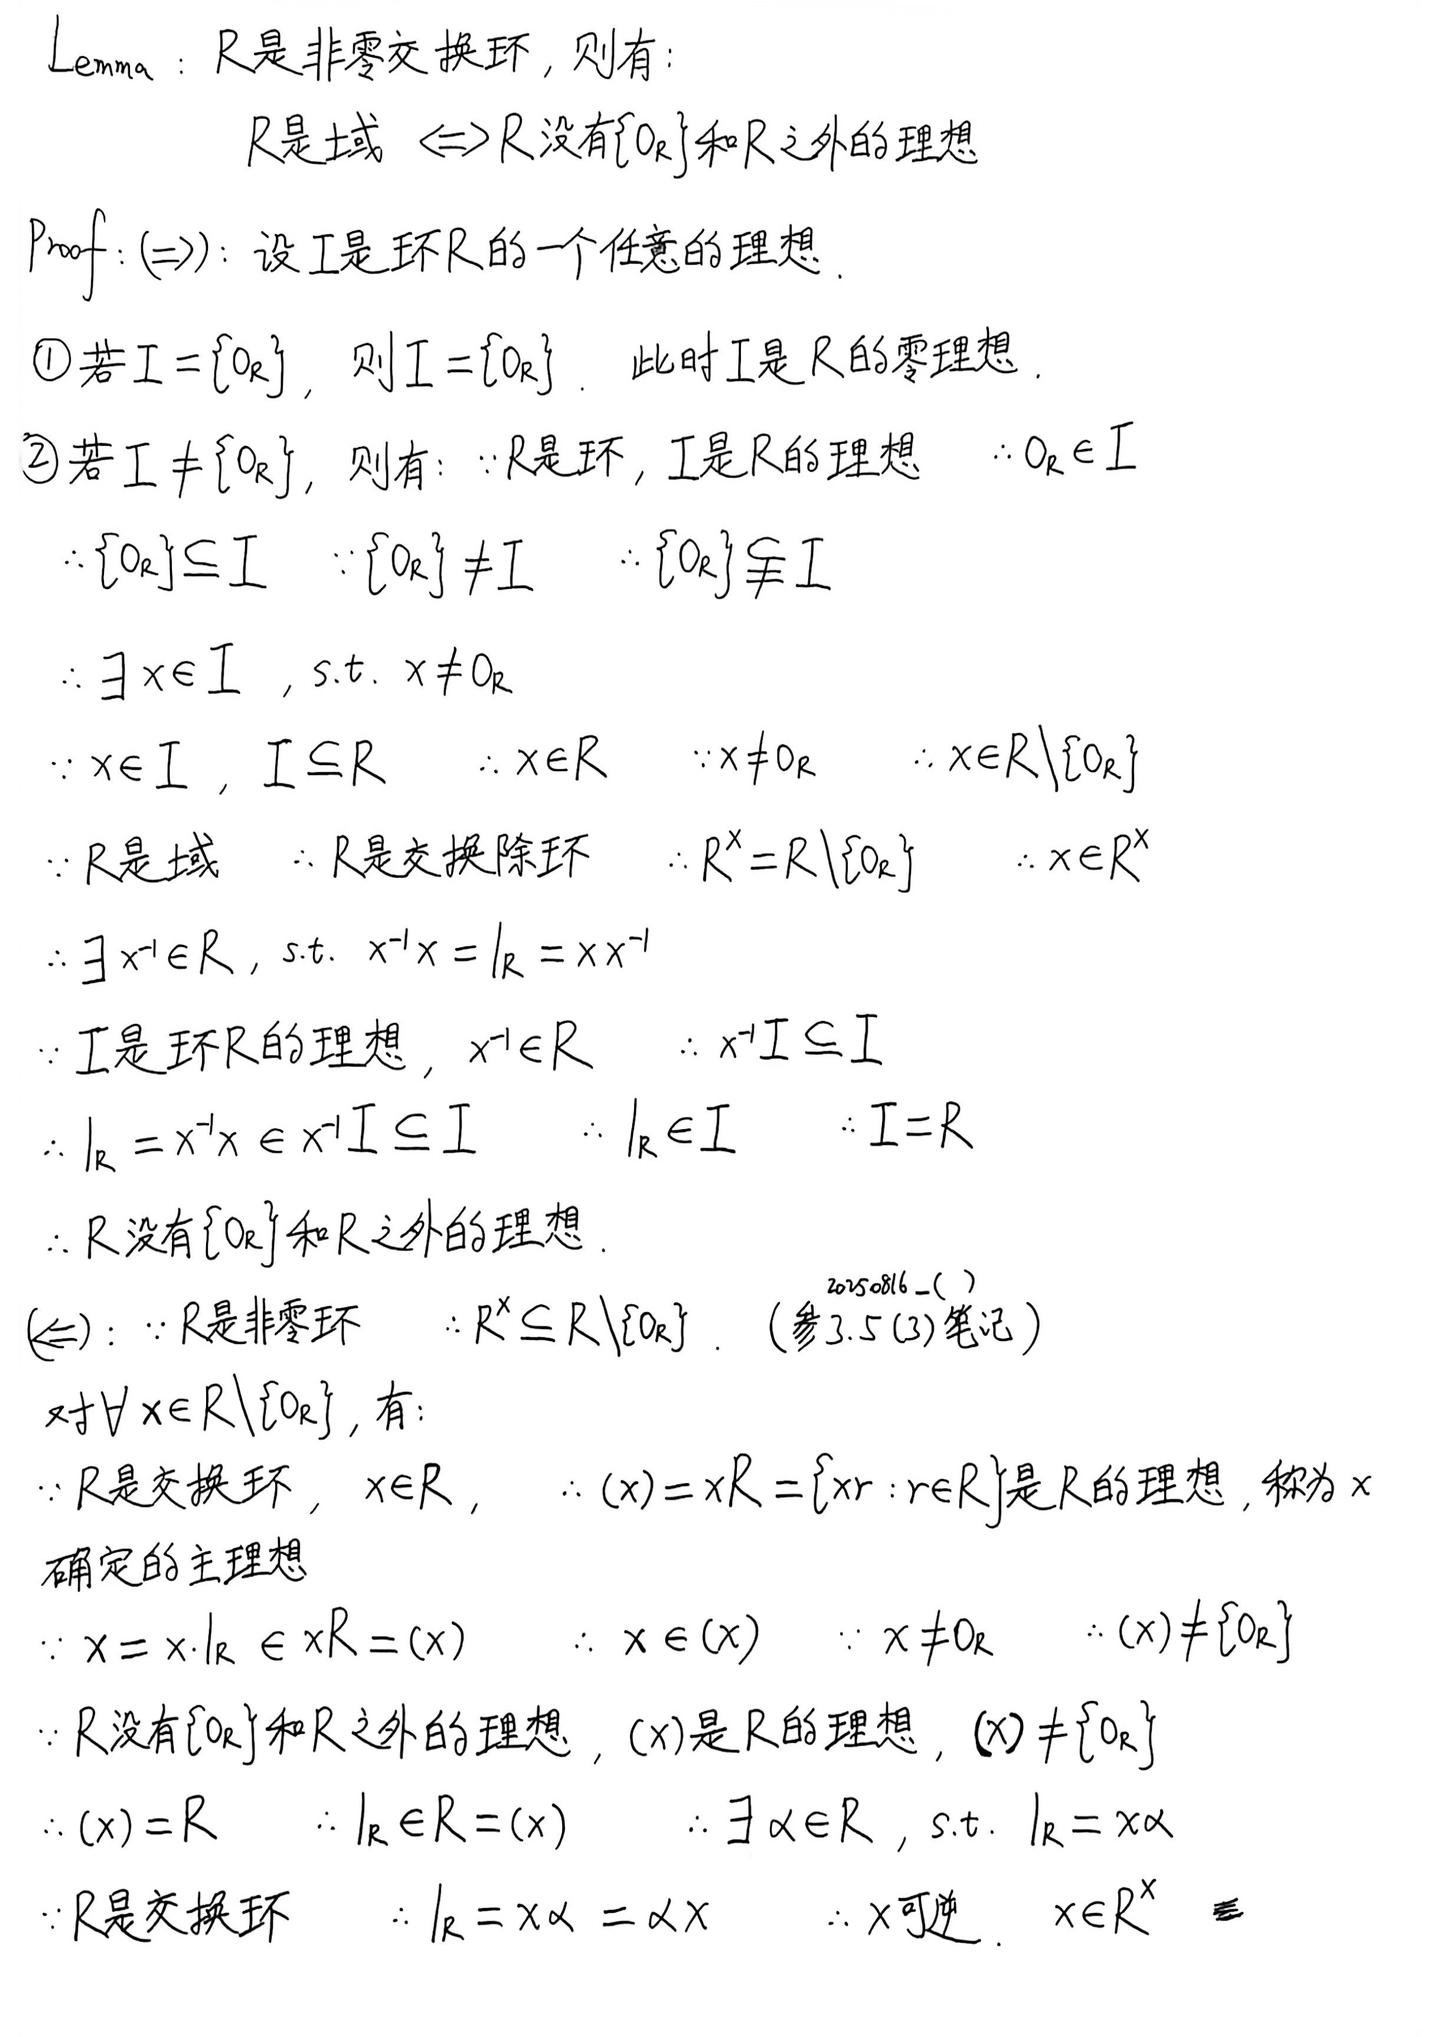 Lemma : R是非零交换环, 则有:
R是域 <=> R没有{0_R}和R之外的理想
Proof: (=>): 设I是环R的一个任意的理想.
①若I={0_R}, 则I={0_R}. 此时I是R的零理想.
②若I≠{0_R}, 则有: ∵R是环, I是R的理想 ∴0_R∈I
∴{0_R}⊆I ∵{0_R}≠I ∴{0_R}⫋I
∴∃x∈I , s.t. x≠0_R
∵x∈I , I⊆R ∴x∈R ∵x≠0_R ∴x∈R\{0_R}
∵R是域 ∴R是交换除环 ∴R^×=R\{0_R} ∴x∈R^×
∴∃x⁻¹∈R, s.t. x⁻¹x=1_R=xx⁻¹
∵I是环R的理想, x⁻¹∈R ∴x⁻¹I⊆I
∴1_R=x⁻¹x∈x⁻¹I⊆I ∴1_R∈I ∴I=R
∴R没有{0_R}和R之外的理想.
20250816_( )
(<=): ∵R是非零环 ∴R^×⊆R\{0_R}. (参3.5(3)笔记)
对∀x∈R\{0_R}, 有:
∵R是交换环, x∈R, ∴(x)=xR={xr:r∈R}是R的理想, 称为x
确定的主理想
∵x=x·1_R∈xR=(x) ∴x∈(x) ∵x≠0_R ∴(x)≠{0_R}
∵R没有{0_R}和R之外的理想, (x)是R的理想, (x)≠{0_R}
∴(x)=R ∴1_R∈R=(x) ∴∃α∈R, s.t. 1_R=xα
∵R是交换环 ∴1_R=xα=αx ∴x可逆. x∈R^×